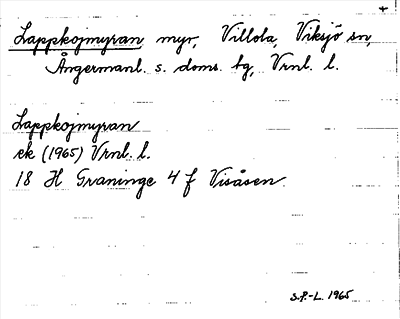 Lappkojmyran myr, Villola, Viksjö sn,
Ångermanl. s. doms. tg, Vrnl. l.
Lappkojmyran
ek (1965) Vrnl. l.
18 H Graninge 4 f Visåsen
S.P.-L. 1965